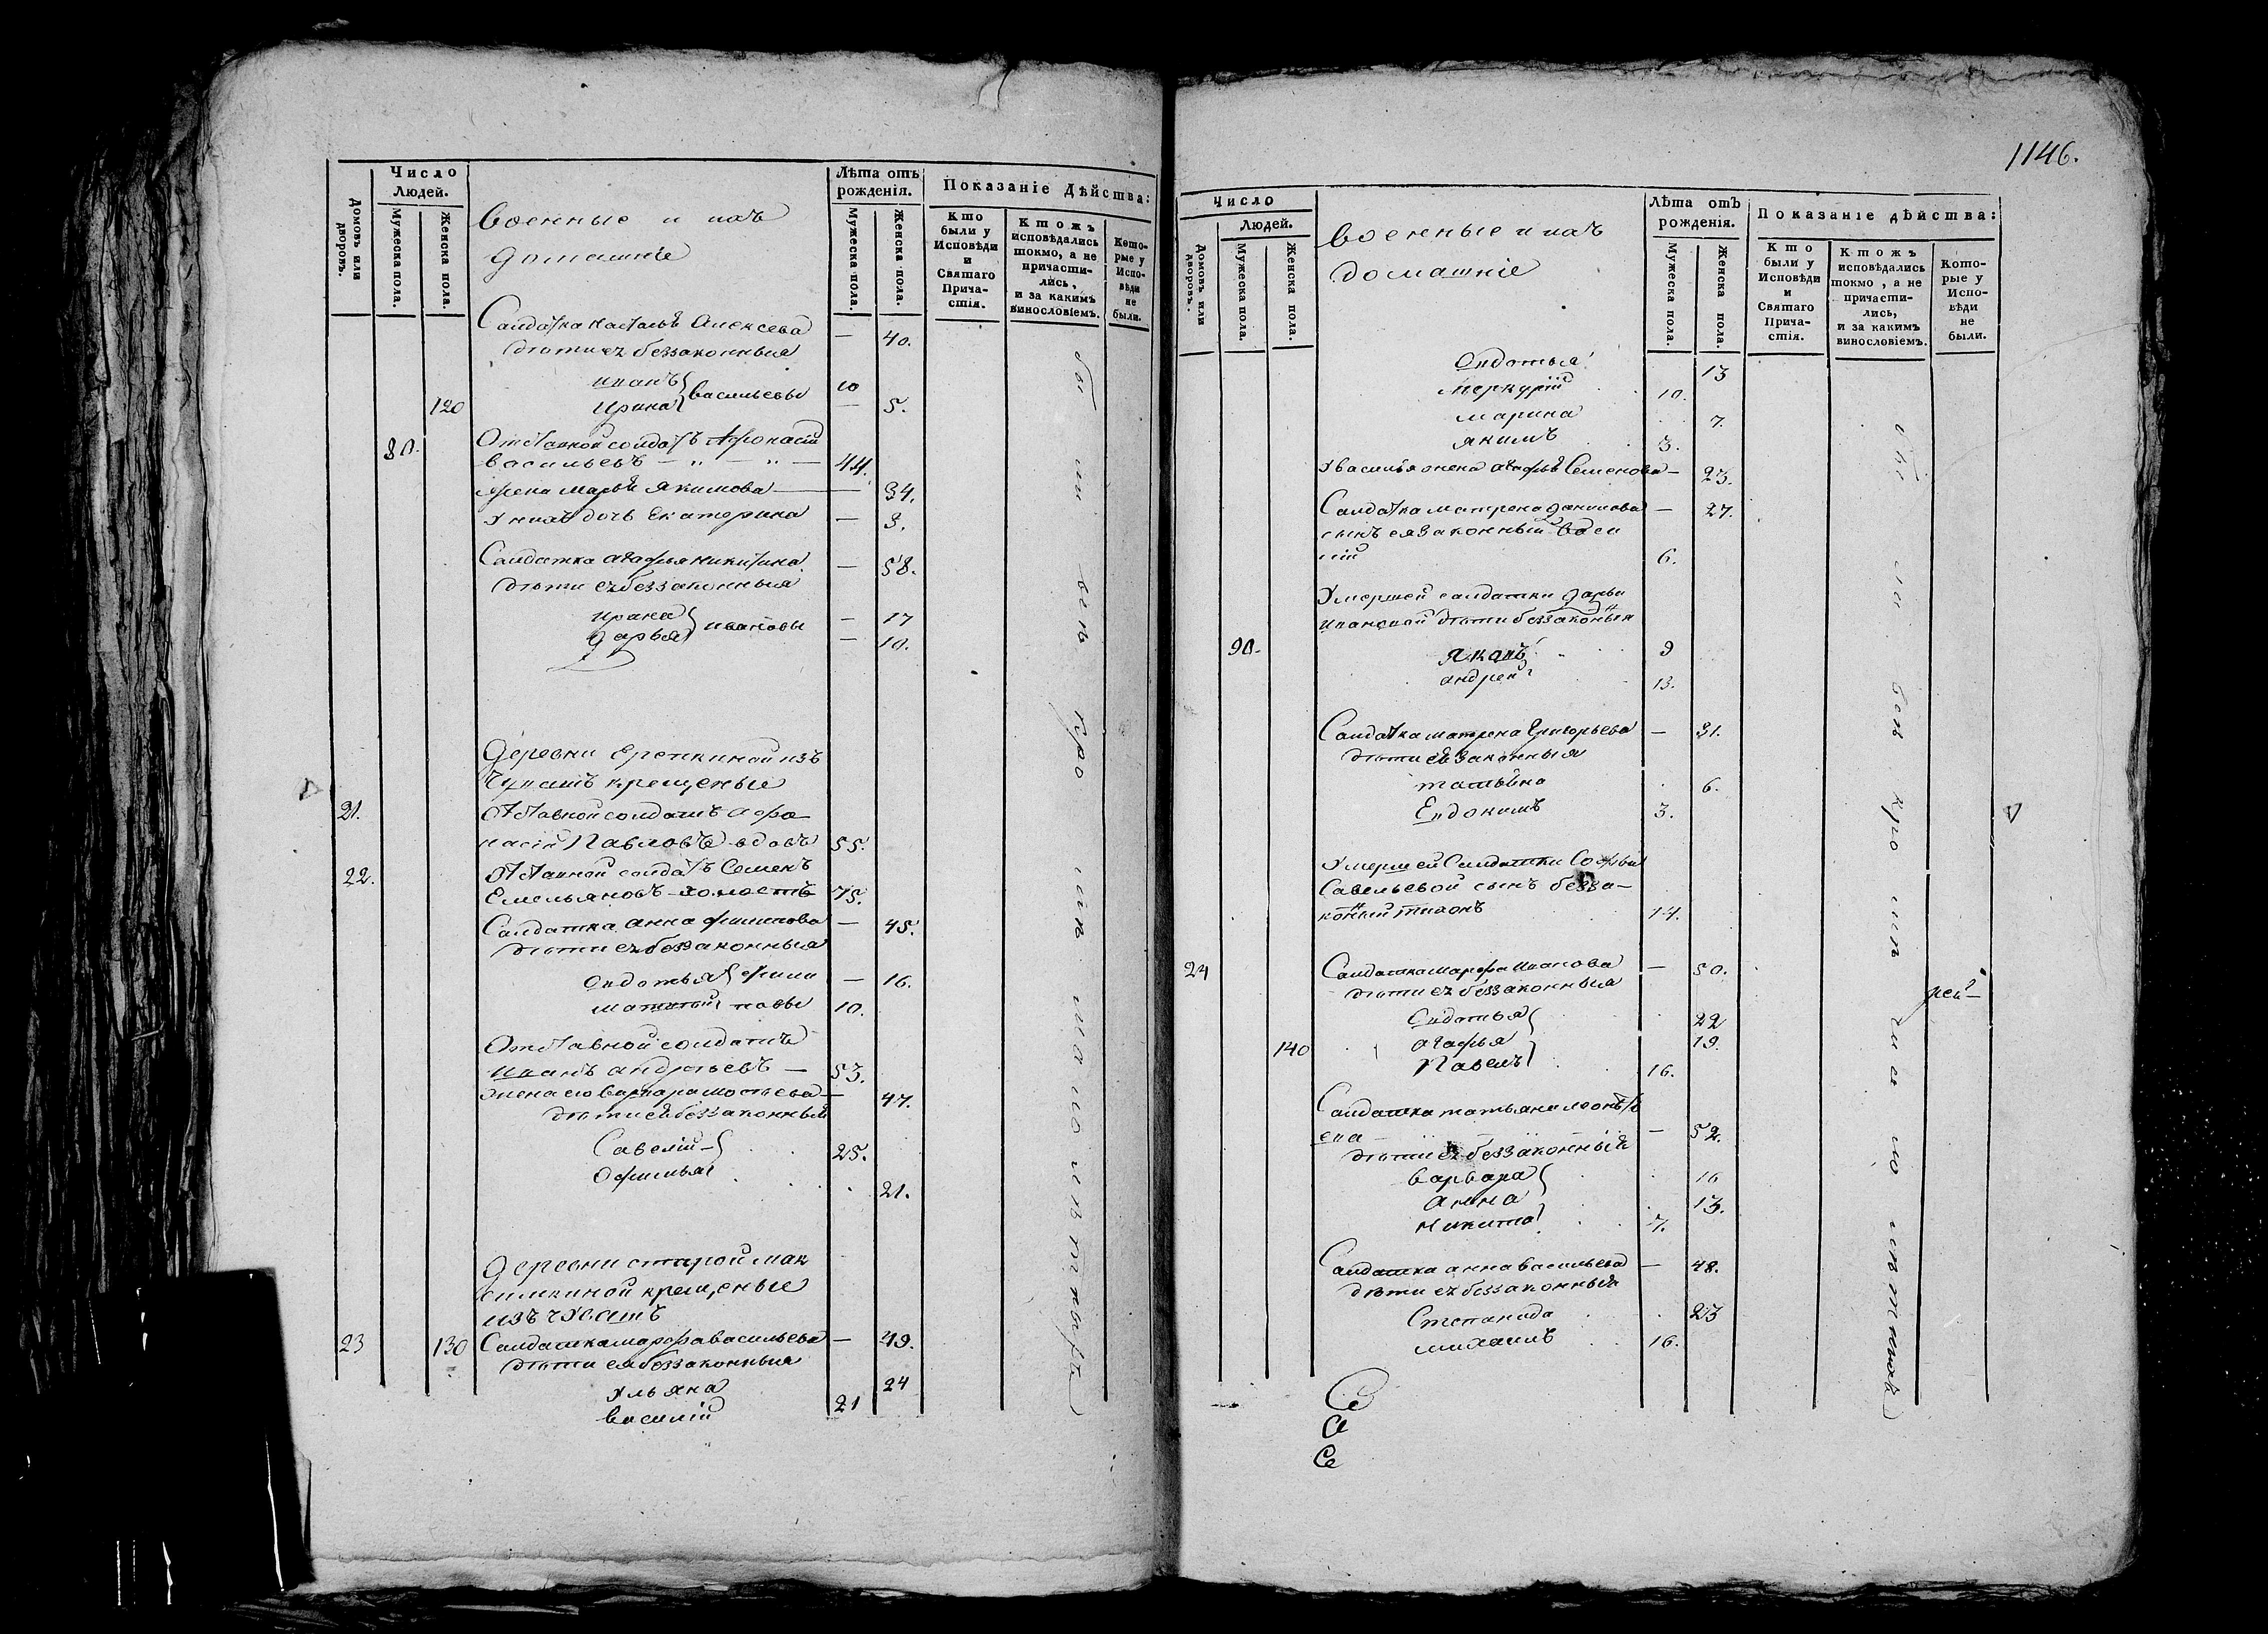 Число
Людей.
Домовъ или дворовъ.
Мужеска пола.
Женска пола.
военные и ихъ
домашніе
Лѣта отъ
рожденія.
Мужеска пола.
Женска пола.
Показаніе Дѣйства:
Кто
были у
Исповѣди
и
Святаго
Прича-
стія.
Ктожъ
исповѣдались
токмо, а не
причасти-
лись,
и за какимъ
винословіемъ.
Кото-
рые у
Испо-
вѣди
не
были.
Салдатка Наталья Алексева — 40.
дѣти ея беззаконныя
Иванъ 10
120 Ирина } васильевы — 5.
80. Отставной солдатъ Афонасій
васильевъ — „ — „ — 44.
жена марья якимова — 34.
У нихъ дочь Екатерина — 3.
Салдатка агафья никитина — 58.
дѣти ея беззаконныя
Ирина — 17
дарья } ивановы — 10.
деревни Ерепкиной изъ
Чувашъ крещеные
21. Отставной солдатъ афо-
насій Павловъ вдовъ 55.
22. Отставной солдатъ Семенъ
Емельяновъ холостъ 75.
Салдатка анна филипова — 45.
дѣти ея беззаконныя
овдотья } фили — 16.
матвей повы 10.
Отставной солдатъ
Иванъ андреевъ — 53.
жена его варвара — 47.
дѣти ея беззаконныя
Савелій 25.
Офимья 21.
деревни старой мак
симкиной крещеные
изъ чувашъ
23 130 Салдатка марфа васильева — 49.
дѣти ея беззаконныя
Ульяна 24
василій 21
1146.
Число
Людей.
Домовъ или дворовъ.
Мужеска пола.
Женска пола.
военные и ихъ
домашніе
Лѣта отъ
рожденія.
Мужеска пола.
Женска пола.
Показаніе дѣйства:
Кто
были у
Исповѣди
и
Святаго
Прича-
стія.
Ктожъ
исповѣдались
токмо, а не
причасти-
лись,
и за какимъ
винословіемъ.
Кото-
рые у
Испо-
вѣди
не
были.
Овдотья 13
Меркурій 10.
марина 7.
якимъ 3.
У василья жена агафья Семенова — 23.
Салдатка матрена данилова — 27.
сынъ ея законный Васи
лій 6.
Умершей салдатки дарьи
Ивановой дѣти беззаконныя
90. 9
андрей 13.
Салдатка матрена Григорьева — 31.
дѣти ея законныя
татьяна 6.
Евдокимъ 3.
Умершей Салдатки Софьи
Савельевой сынъ безза-
конный тихонъ 14.
24 Салдатка марфа Иванова — 50.
дѣти ея беззаконныя
Овдотья 22
140 агафья 19.
Павелъ 16.
Салдатка татьяна леонть
ева — 52.
дѣти ея беззаконныя
варвара 16
анна 13.
никита 7.
Салдатка анна васильева — 48.
дѣти ея беззаконныя
Степанида 23
михаилъ 16.